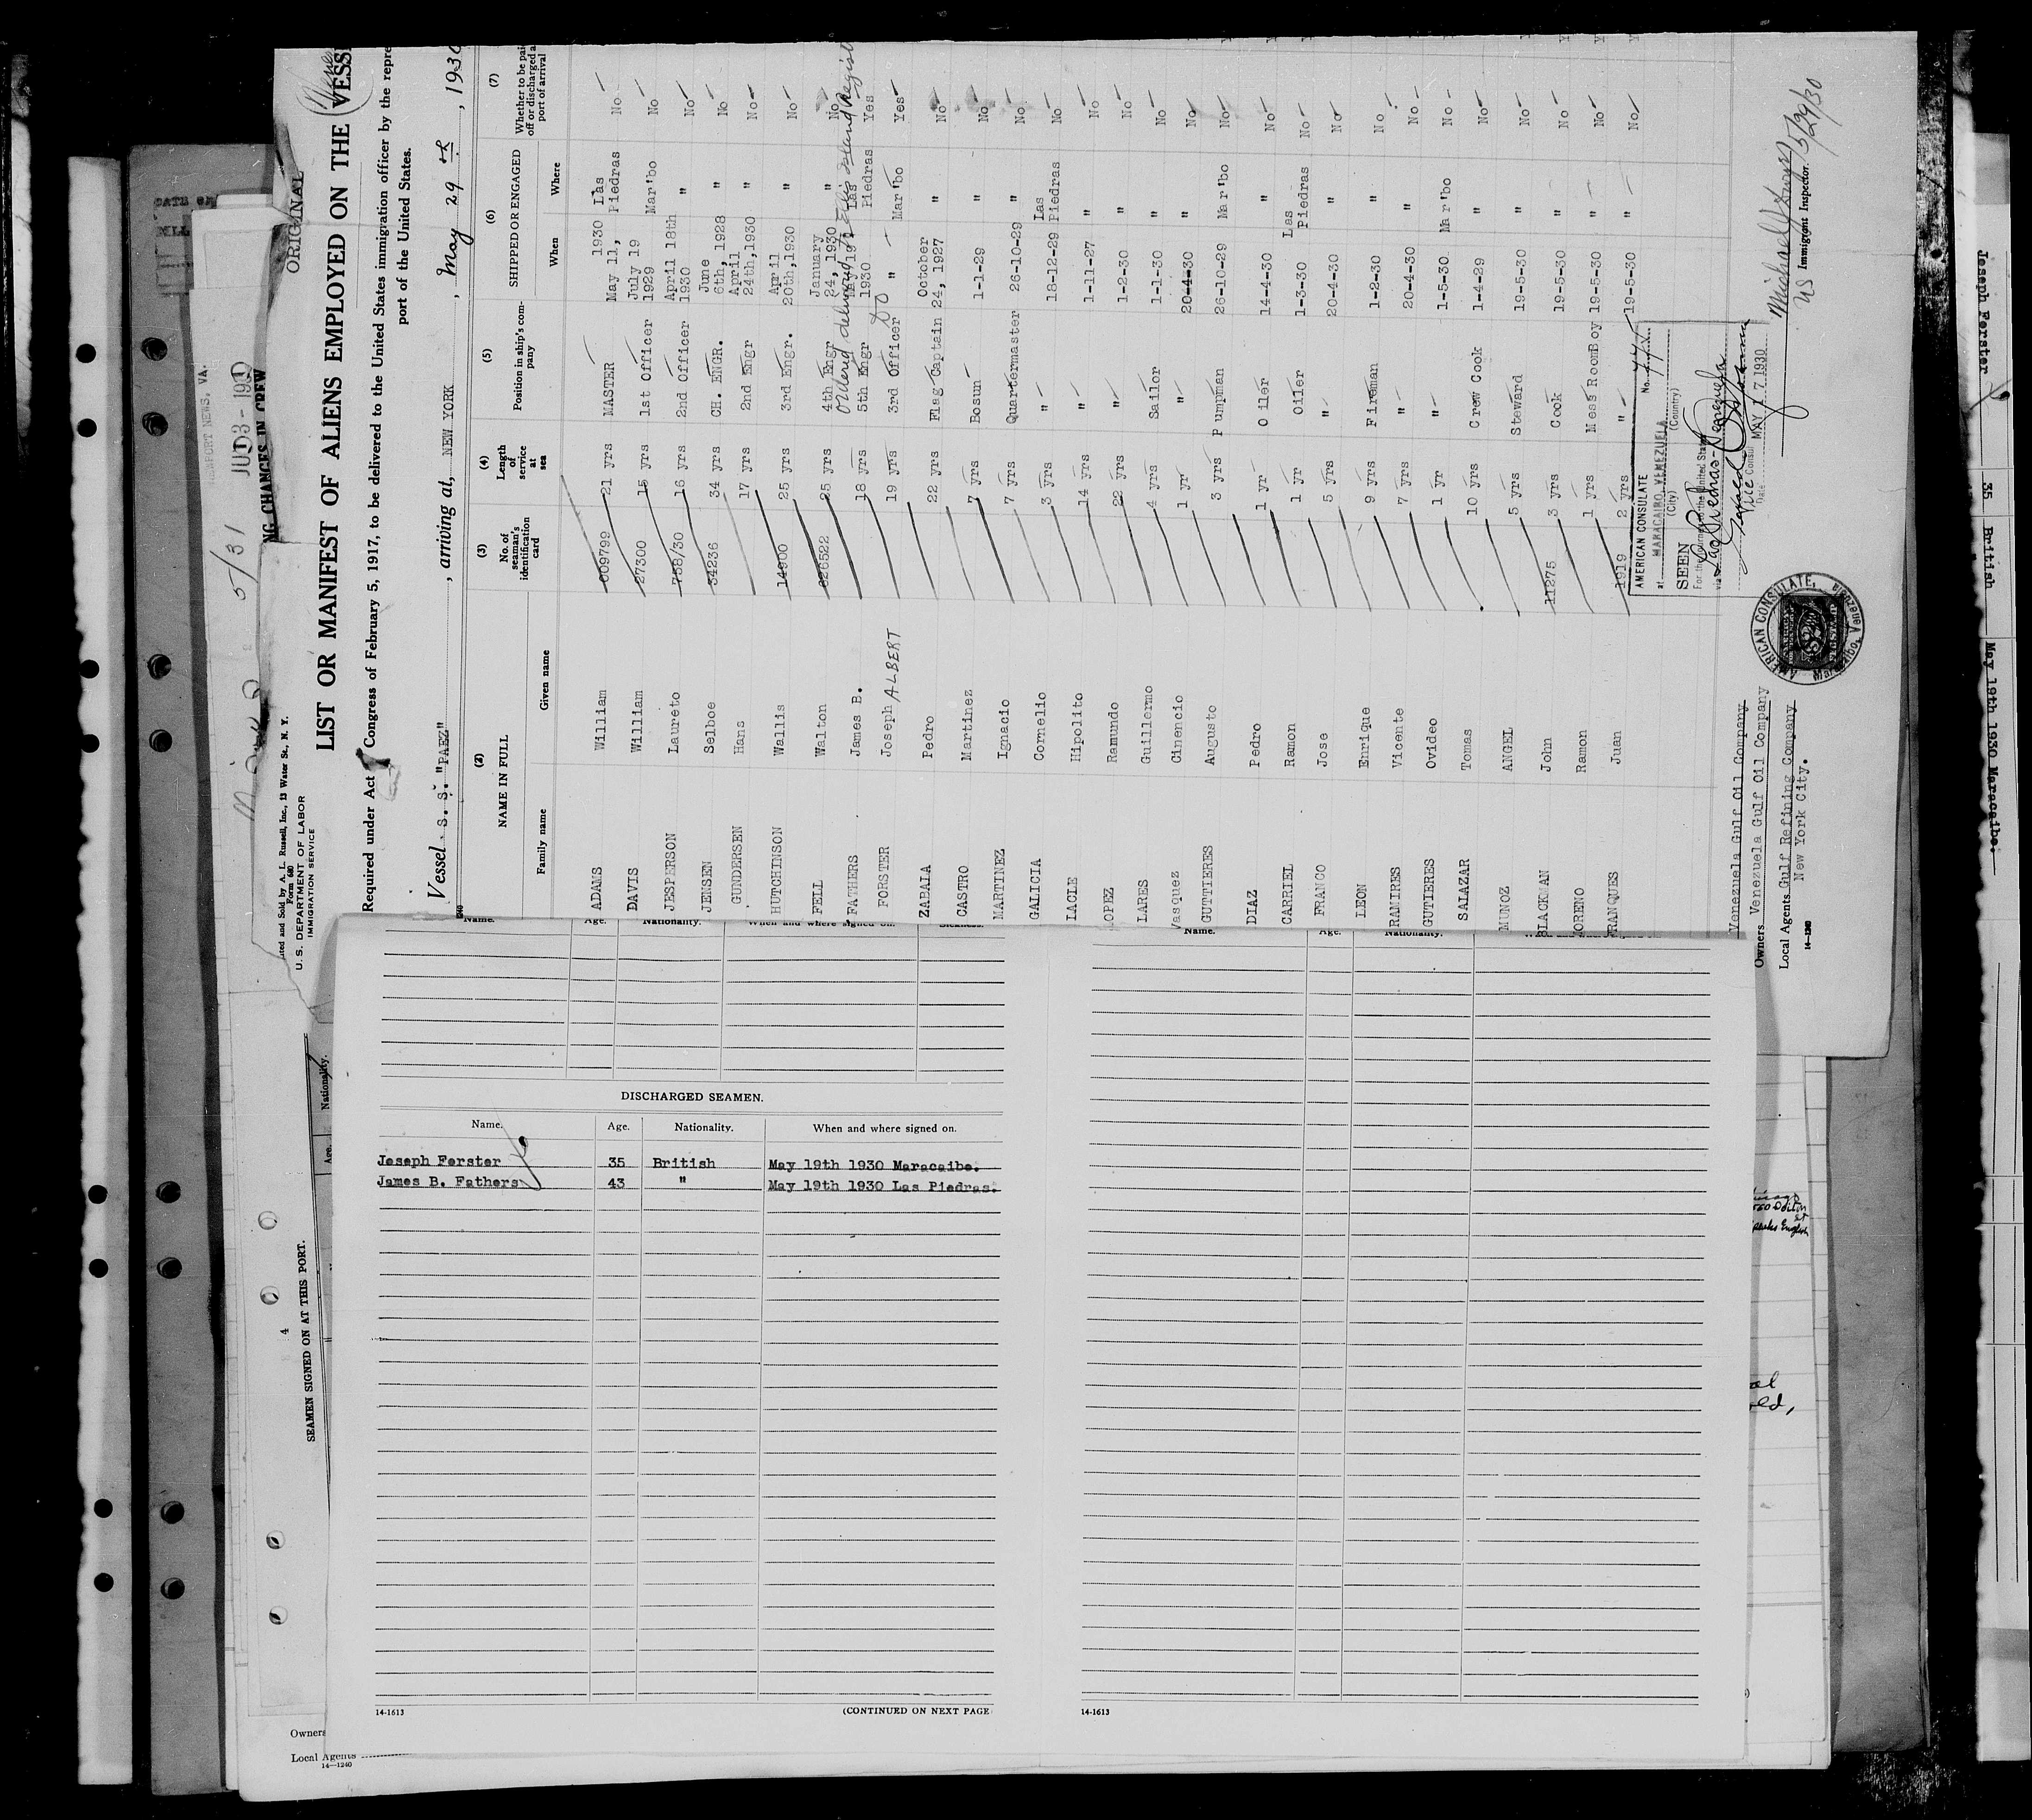 ORIGINAL
U. S. DEPARTMENT OF LABOR
IMMIGRATION SERVICE
LIST OR MANIFEST OF ALIENS EMPLOYED ON THE VESS
Required under Act Congress of February 5, 1917, to be delivered to the United States immigration officer by the repre
port of the United States.
Vessel S. S. "PAEZ" , arriving at, NEW YORK , May 29 , 1930
(2) NAME IN FULL (3) No. of seaman's identification card (4) Length of service at sea (5) Position in ship's company (6) SHIPPED OR ENGAGED (7) Whether to be paid off or discharged a port of arrival
Family name Given name When Where
ADAMS William 609799 21 yrs MASTER May 11, 1930 Las Piedras No
DAVIS William 27300 15 yrs 1st Officer July 19 1929 Mar'bo No
JESPERSON Laureto 758/30 16 yrs 2nd Officer April 18th 1930 " No
JENSEN Selboe 34236 34 yrs CH. ENGR. June 6th, 1928 " No
GUNDERSEN Hans 17 yrs 2nd Engr April 24th,1930 " No
HUTCHINSON Wallis 14900 25 yrs 3rd Engr. April 20th,1930 " No
FELL Walton 826522 25 yrs 4th Engr January 24, 1930 " No
FATHERS James B. 18 yrs 5th Engr 1930 Las Piedras Yes
FORSTER Joseph ALBERT 19 yrs 3rd Officer " Mar'bo Yes
ZABALA Pedro 22 yrs Flag Captain October 24, 1927 " No
CASTRO Martinez 7 yrs Bosun 1-1-29 " No
MARTINEZ Ignacio 7 yrs Quartermaster 26-10-29 " No
GALICIA Cornelio 3 yrs " 18-12-29 Las Piedras No
LACLE Hipolito 14 yrs " 1-11-27 " No
LOPEZ Ramundo 22 yrs " 1-2-30 " No
LARES Guillermo 4 yrs Sailor 1-1-30 " No
Vasquez Cinencio 1 yr " 20-4-30 " No
GUTTIERES Augusto 3 yrs Pumpman 26-10-29 Mar'bo No
DIAZ Pedro 1 yr Oiler 14-4-30 " No
CARRIEL Ramon 1 yr Oiler 1-3-30 Las Piedras No
FRANCO Jose 5 yrs " 20-4-30 " No
LEON Enrique 9 yrs Fireman 1-2-30 " No
RAMIRES Vicente 7 yrs " 20-4-30 " No
GUTIERES Ovideo 1 yr " 1-5-30 Mar'bo No
SALAZAR Tomas 10 yrs Crew Cook 1-4-29 " No
MUNOZ ANGEL 5 yrs Steward 19-5-30 " No
BLACKMAN John 11275 3 yrs Cook 19-5-30 " No
MORENO Ramon 1 yrs Mess RoomBoy 19-5-30 " No
FRANQUES Juan 1919 2 yrs " 19-5-30 " No
AMERICAN CONSULATE No.
at MARACAIBO, VENEZUELA
(City) (Country)
SEEN
For the journey to the United States
Date MAY 17 1930
AMERICAN CONSULATE,
Immigrant Inspector.
5/29/30
Venezuela Gulf Oil Company
Owners Venezuela Gulf Oil Company
Local Agents Gulf Refining Company
New York City.
14-1240
Name. Age. Nationality. When and where signed on. Sickness.
DISCHARGED SEAMEN.
Name. Age. Nationality. When and where signed on.
Joseph Forster 35 British May 19th 1930 Maracaibo.
James B. Fathers 43 " May 19th 1930 Las Piedras.
14-1613
(CONTINUED ON NEXT PAGE
Name. Age. Nationality.
14-1613
4
SEAMEN SIGNED ON AT THIS PORT.
Age. Nationality.
Owners
Local Agents
14-1240
5/31
NG CHANGES IN CREW
Joseph Forster 35 British May 19th 1930 Maracaibo.